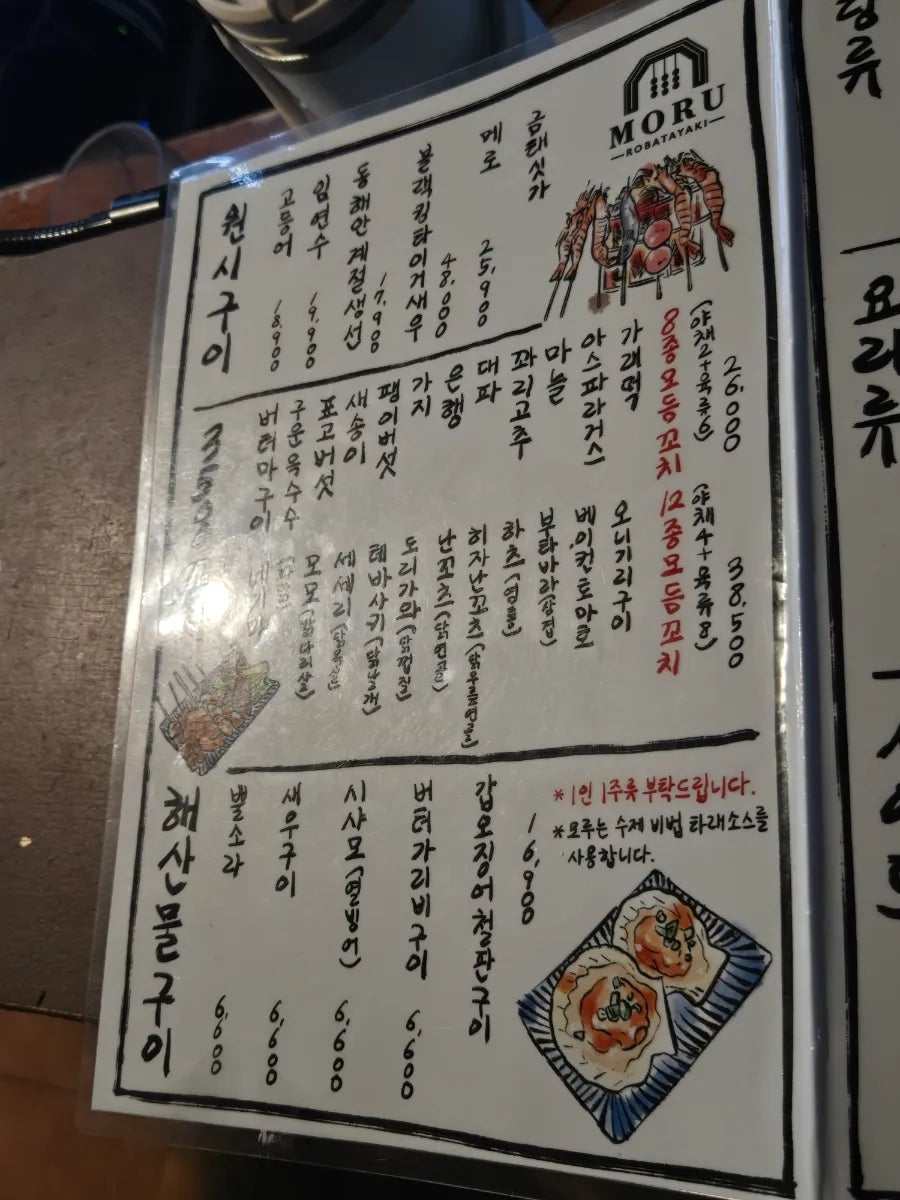 MORU
ROBATAYAKI
원시구이
고등어 18,900
임연수 19,900
동해안계절생선 17,900
블랙킹타이거새우 48,000
메로 25,900
금태싯가
버터마구이
구운옥수수
표고버섯
새송이
팽이버섯
가지
은행
대파
꽈리고추
마늘
아스파라거스
가래떡
네기마
모모(닭다리살)
세세리(닭목살)
테바사키(닭날개)
도리가와(닭껍질)
난꼬츠(닭연골)
히자난꼬츠(닭무릎연골)
하츠(염통)
부타바라(삼겹)
베이컨토마토
오니기리구이
8종모듬꼬치
(야채2+육류6)
26,000
12종모듬꼬치
(야채4+육류8)
38,500
해산물구이
뿔소라 6,600
새우구이 6,600
시샤모(열빙어) 6,600
버터가리비구이 6,600
갑오징어철판구이
16,900
*1인 1주류 부탁드립니다.
*모루는 수제 비법 타래소스를
사용합니다.
요리류